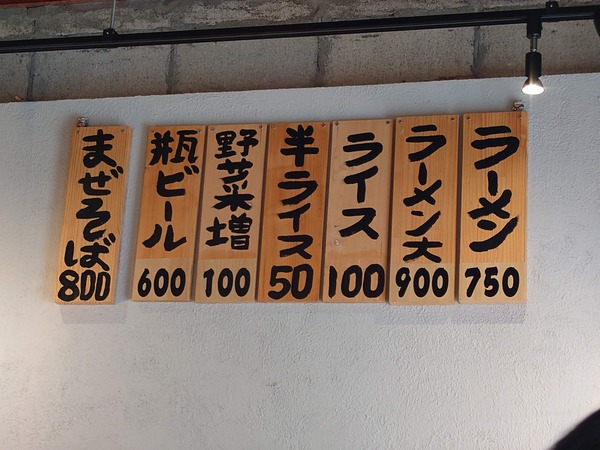 ラーメン
750
ラーメン大
900
ライス
100
半ライス
50
野菜増
100
瓶ビール
600
まぜそば
800